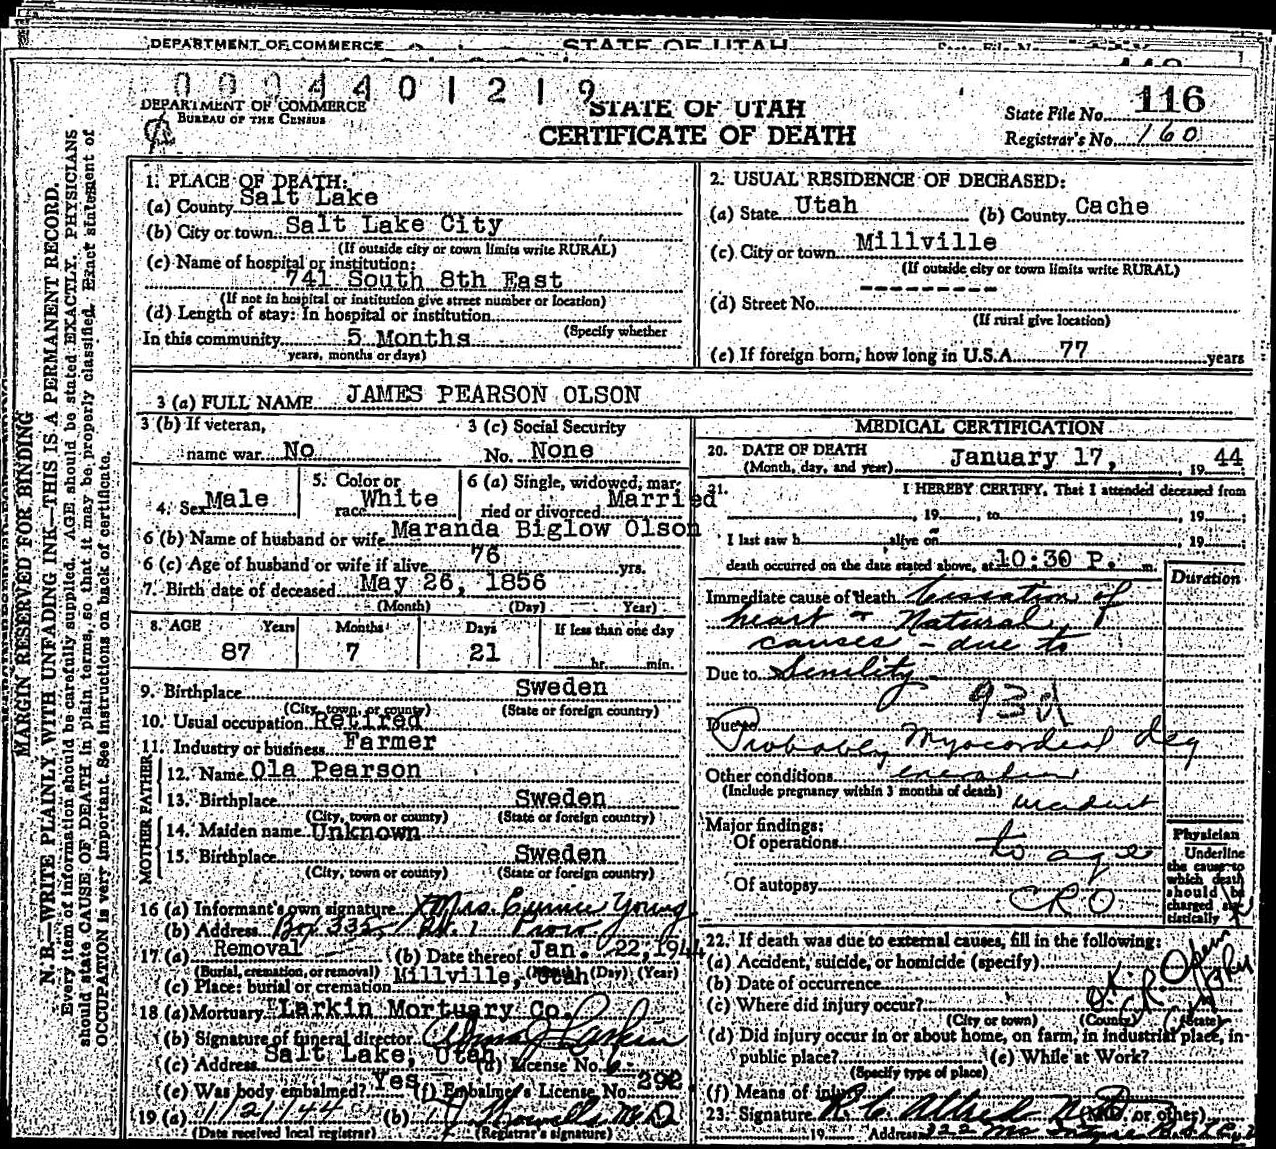 DEPARTMENT OF COMMERCE STATE OF UTAH
0 0 0 4 4 0 1 2 1 9
DEPARTMENT OF COMMERCE
BUREAU OF THE CENSUS
STATE OF UTAH
CERTIFICATE OF DEATH
State File No. 116
Registrar's No. 160
MARGIN RESERVED FOR BINDING
N. B.—WRITE PLAINLY, WITH UNFADING INK—THIS IS A PERMANENT RECORD.
Every item of information should be carefully supplied. AGE should be stated EXACTLY. PHYSICIANS
should state CAUSE OF DEATH in plain terms, so that it may be properly classified. Exact statement of
OCCUPATION is very important. See instructions on back of certificate.
1. PLACE OF DEATH:
(a) County Salt Lake
(b) City or town Salt Lake City
(If outside city or town limits write RURAL)
(c) Name of hospital or institution:
741 South 8th East
(If not in hospital or institution give street number or location)
(d) Length of stay: In hospital or institution
(Specify whether
In this community 5 Months
years, months or days)
2. USUAL RESIDENCE OF DECEASED:
(a) State Utah (b) County Cache
(c) City or town Millville
(If outside city or town limits write RURAL)
(d) Street No. ---------
(If rural give location)
(e) If foreign born, how long in U.S.A. 77 years
3 (a) FULL NAME JAMES PEARSON OLSON
3 (b) If veteran, name war No
3 (c) Social Security No. None
4. Sex Male
5. Color or race White
6 (a) Single, widowed, married or divorced Married
6 (b) Name of husband or wife Maranda Biglow Olson
6 (c) Age of husband or wife if alive 76 yrs.
7. Birth date of deceased May 26, 1856
(Month) (Day) Year)
8. AGE Years Months Days If less than one day
87 7 21 hr. min.
9. Birthplace Sweden
(City, town, or county) (State or foreign country)
10. Usual occupation Retired
11. Industry or business Farmer
FATHER
12. Name Ola Pearson
13. Birthplace Sweden
(City, town or county) (State or foreign country)
MOTHER
14. Maiden name Unknown
15. Birthplace Sweden
(City, town or county) (State or foreign country)
16 (a) Informant's own signature Mrs. Young
(b) Address Box 335 Provo
17 (a) Removal (b) Date thereof Jan. 22, 1944
(Burial, cremation, or removal) (Month) (Day) (Year)
(c) Place: burial or cremation Millville, Utah
18 (a) Mortuary Larkin Mortuary Co.
(b) Signature of funeral director Larkin
(c) Address Salt Lake, Utah (d) License No. 6
(e) Was body embalmed? Yes (f) Embalmer's License No. 292.
19 (a) 1/21/44 (b) M D
(Date received local registrar) (Registrar's signature)
MEDICAL CERTIFICATION
20. DATE OF DEATH
(Month, day, and year) January 17, 19 44
21. I HEREBY CERTIFY, That I attended deceased from
19 , to , 19 ;
I last saw h alive on , 19 ;
death occurred on the date stated above, at 10:30 P. m.
Duration
Immediate cause of death Cessation of
heart - Natural
causes - due to
Due to Senility
93d
Due to
Probably Myocardial deg
Other conditions eneration
(Include pregnancy within 3 months of death)
incident
Major findings:
Of operations to age
Of autopsy CRO
Physician
Underline
the cause to
which death
should be
charged sta-
tistically
22. If death was due to external causes, fill in the following:
(a) Accident, suicide, or homicide (specify)
(b) Date of occurrence
(c) Where did injury occur?
(City or town) (County) (State)
O.K.
(d) Did injury occur in or about home, on farm, in industrial place, in
public place? (e) While at Work?
(Specify type of place)
(f) Means of injury
23. Signature Allred M D (M.D. or other)
19 Address